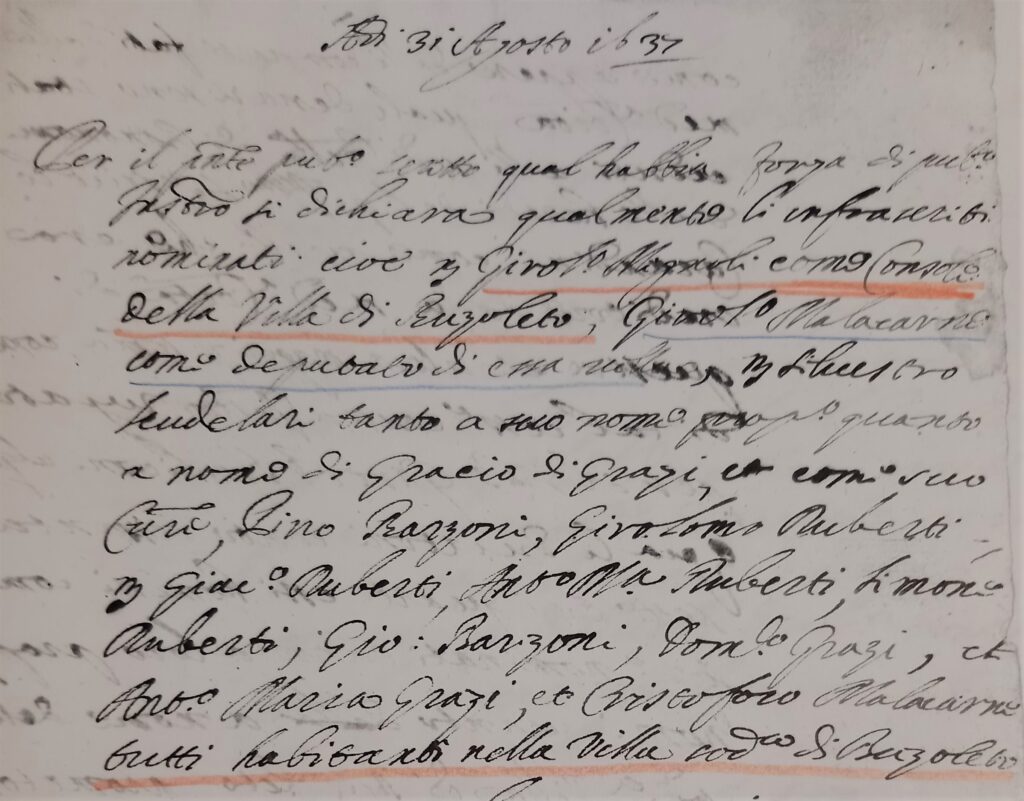 Adi 31 Agosto 1637
Per il pnte pubo scritto qual habbia forza di pubo
Instro si dichiara qualmente li infrascriti
nominati cioè m Girolo Magnoli come Console
della Villa di Buzoleto, Girolo Malacarne
come deputato di essa villa, m Silvestro
scudelari tanto a suo nome propo quanto
a nome di Gracio di Grazi, et come suo
Cure, Pino Barzoni, Girolomo Ruberti,
m Giaco Ruberti, Anto Ma Ruberti, Simone
Ruberti, Gio: Barzoni, Domco Grazi, et
Anto Maria Grazi, et Cristoforo Malacarne
tutti habitanti nella Villa sodco di Buzoleto